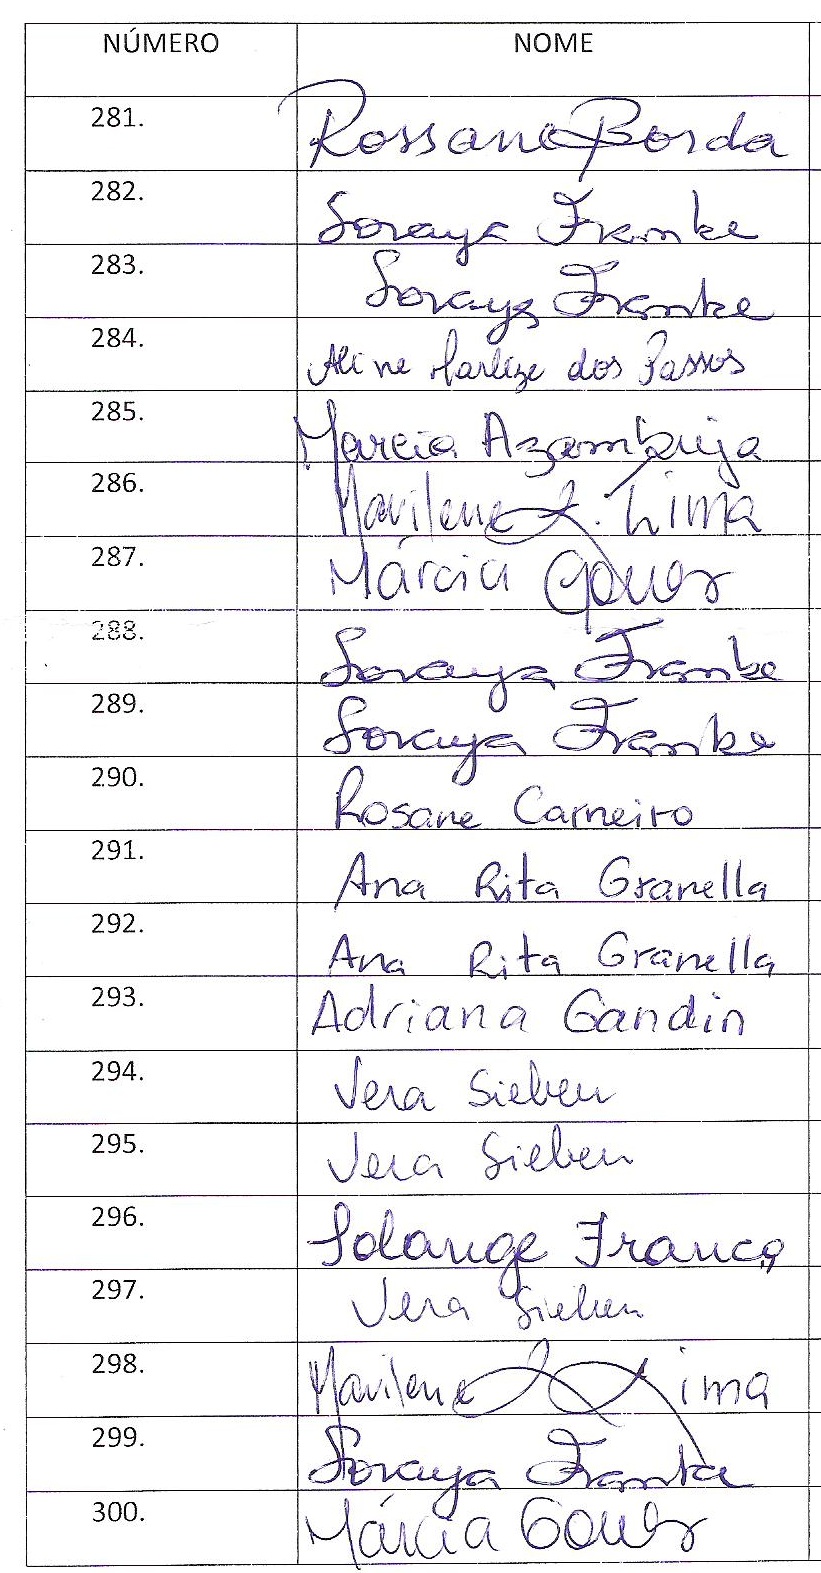 NÚMERO NOME
281. Rossana Borda
282. Soraya Franke
283. Soraya Franke
284. Aline Marlize dos Passos
285. Marcia Azambuja
286. Marilene L. Lima
287. Márcia Gomes
288. Soraya Franke
289. Soraya Franke
290. Rosane Carneiro
291. Ana Rita Granella
292. Ana Rita Granella
293. Adriana Gandin
294. Vera Sieben
295. Vera Sieben
296. Solange Franco
297. Vera Sieben
298. Marilene L Lima
299. Soraya Franke
300. Márcia Gomes